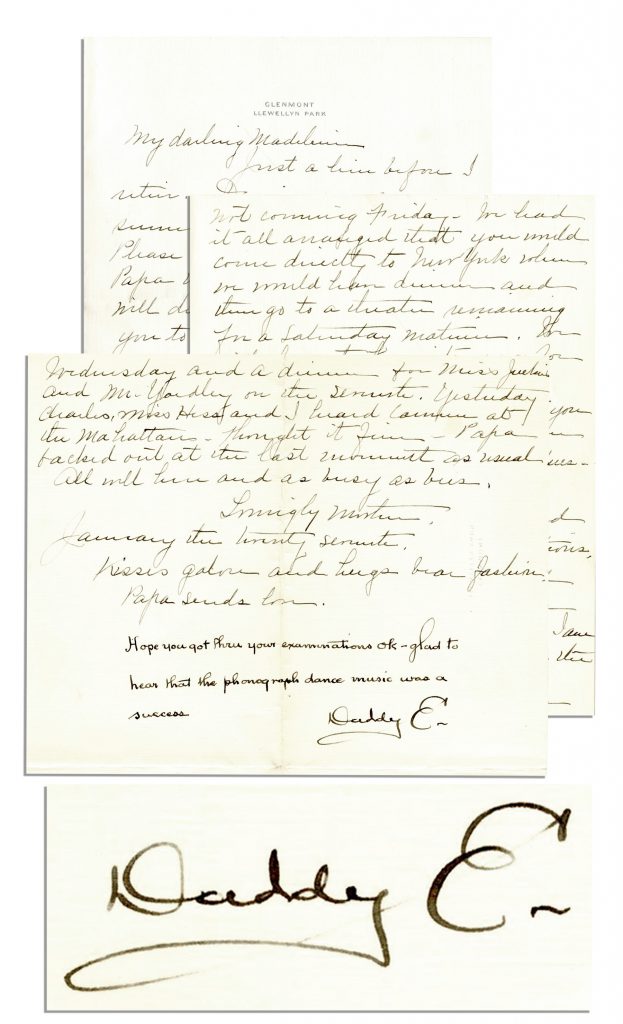 GLENMONT
LLEWELLYN PARK
My darling Madeleine
Just a line before I
Please
Papa
will
you to
not coming Friday - We had
it all arranged that you would
come directly to New York when
we would have dinner and
then go to a theater remaining
for a Saturday matinee.
Wednesday and a dinner for Miss
and Mr. Yardley on the seventh. Yesterday
Charles, Miss Hess and I heard Carmen at
the Mahattan - thought it fine - Papa
backed out at the last moment as usual
All well here and as busy as bees.
Lovingly Mother.
January the twenty seventh.
Kisses galore and hugs bear fashion.
Papa sends love.
you
I am
the
Hope you got thru your examinations ok - glad to
hear that the phonograph dance music was a
success
Daddy E~
Daddy E~